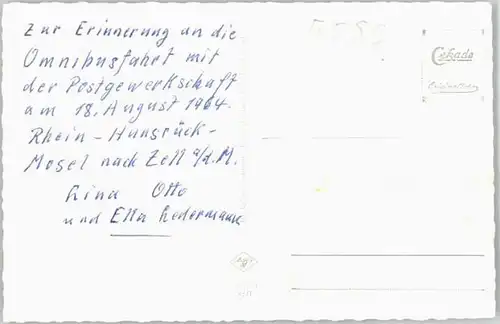 Zur Erinnerung an die
Omnibusfahrt mit
der Postgewerkschaft
am 18. August 1964.
Rhein – Hunsrück –
Mosel nach Zell a/d.M.
Lina Otto
und Ella Ledermann
Cekade